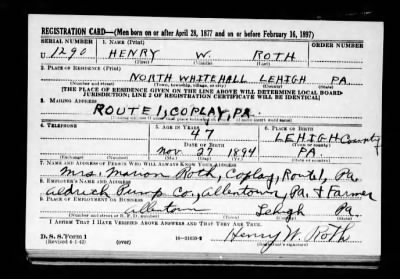 REGISTRATION CARD—(Men born on or after April 28, 1877 and on or before February 16, 1897)
SERIAL NUMBER 1. NAME (Print) ORDER NUMBER
U 1290 HENRY W. ROTH
(First) (Middle) (Last)
2. PLACE OF RESIDENCE (Print)
NORTH WHITEHALL LEHIGH PA.
(Number and street) (Town, township, village, or city) (County) (State)
[THE PLACE OF RESIDENCE GIVEN ON THE LINE ABOVE WILL DETERMINE LOCAL BOARD
JURISDICTION; LINE 2 OF REGISTRATION CERTIFICATE WILL BE IDENTICAL]
3. MAILING ADDRESS
ROUTE 1, COPLAY, PA.
[Mailing address if other than place indicated on line 2. If same insert word same]
4. TELEPHONE 5. AGE IN YEARS 6. PLACE OF BIRTH
47 LEHIGH County
DATE OF BIRTH (Town or county)
Nov. 27 1894 PA.
(Exchange) (Number) (Mo.) (Day) (Yr.) (State or country)
7. NAME AND ADDRESS OF PERSON WHO WILL ALWAYS KNOW YOUR ADDRESS
Mrs. Marion Roth, Coplay, Route 1, Pa.
8. EMPLOYER'S NAME AND ADDRESS
Aldrich Pump Co., Allentown, Pa. & Farmer
9. PLACE OF EMPLOYMENT OR BUSINESS
Allentown Lehigh Pa.
(Number and street or R. F. D. number) (Town) (County) (State)
I AFFIRM THAT I HAVE VERIFIED ABOVE ANSWERS AND THAT THEY ARE TRUE.
D. S. S. Form 1
(Revised 4-1-42) (over) Henry W. Roth